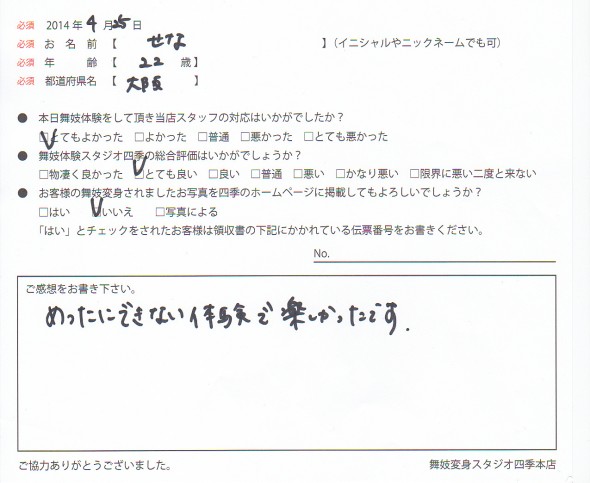 必須 2014年4月25日
必須 お名前【 せな 】(イニシャルやニックネームでも可)
必須 年齢【 22 歳】
必須 都道府県名【 大阪 】
● 本日舞妓体験をして頂き当店スタッフの対応はいかがでしたか?
☑とてもよかった □よかった □普通 □悪かった □とても悪かった
● 舞妓体験スタジオ四季の総合評価はいかがでしょうか?
□物凄く良かった ☑とても良い □良い □普通 □悪い □かなり悪い □限界に悪い二度と来ない
● お客様の舞妓変身されましたお写真を四季のホームページに掲載してもよろしいでしょうか?
□はい ☑いいえ □写真による
「はい」とチェックをされたお客様は領収書の下記にかかれている伝票番号をお書きください。
No.
ご感想をお書き下さい。
めったにできない体験で楽しかったです.
ご協力ありがとうございました。 舞妓変身スタジオ四季本店